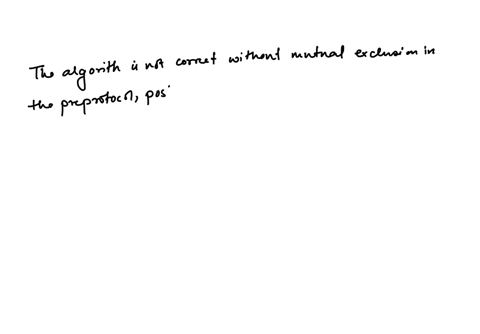 The algorith is not correct without mutual exclusion in
the preprotocol, pos